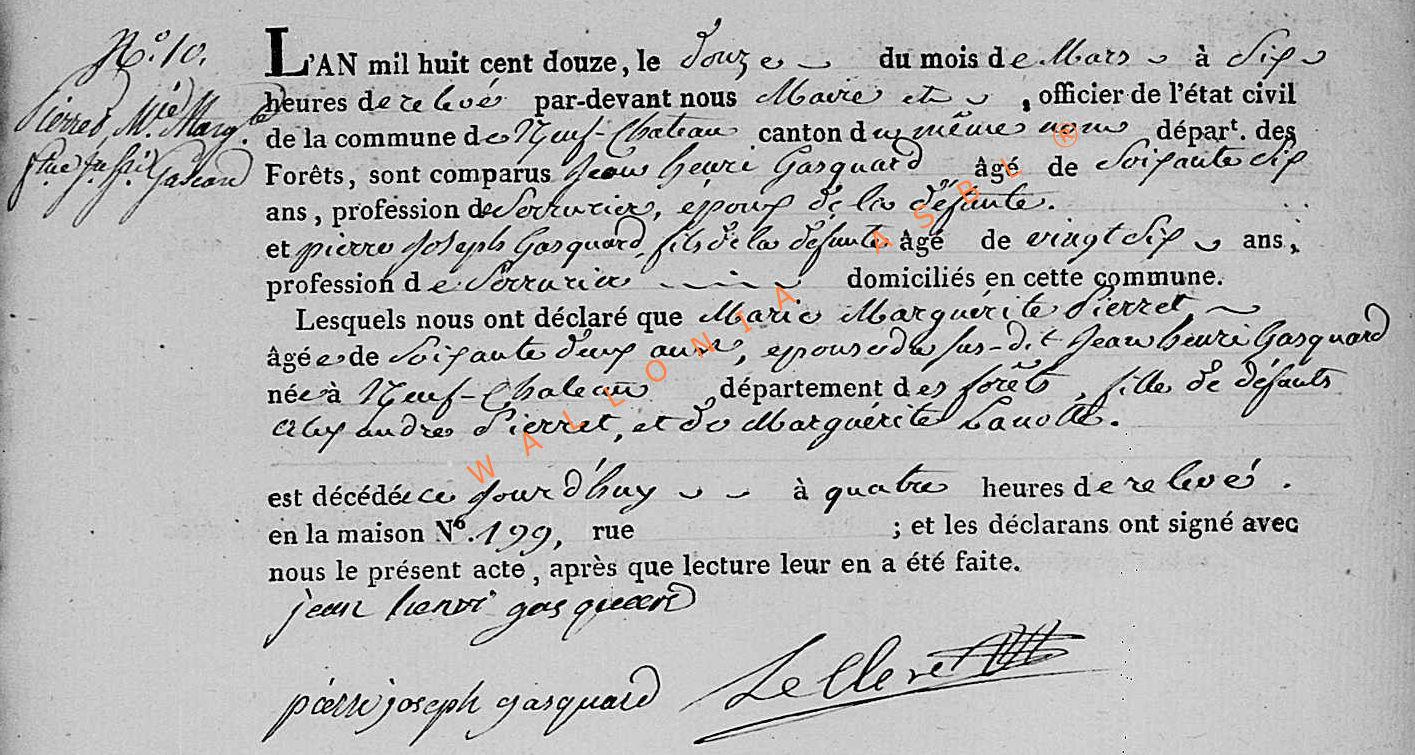 N.o 10.
Pierret, M.ie Marg.te
L'AN mil huit cent douze, le douze du mois de Mars à Six
heures de relevé par-devant nous Maire et, officier de l'état civil
de la commune de Neuf-Chateau canton du même nom, départ. des
Forêts, sont comparus Jean henri Gasquard âgé de Soixante Six
ans, profession de Serrurier, epoux de la défunte.
et pierre Joseph Gasquard, fils de la défunte âgé de vingt Six ans,
profession de Serrurier domiciliés en cette commune.
Lesquels nous ont déclaré que Marie Marguérite Pierret,
âgée de Soixante deux ans, epouse du sus-dit Jean henri Gasquard
née à Neuf-Chateau, département des forêts, fille de défunts
Alexandre Pierret, et de Marguérite Lanotte.
est décédée ce jourd'huy à quatre heures de relevé.
en la maison No. 199, rue ; et les déclarans ont signé avec
nous le présent acte, après que lecture leur en a été faite.
jean henri gasquard
pierre joseph gasquard LeClerc
WALLONIA ASBL ®